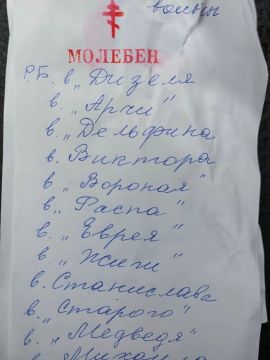 воины
МОЛЕБЕН
Р.Б. в „Дизеля
в. „Арчи"
в. „Дельфина
в. Виктора
в. „Вороная"
в. „Распа"
в. „Еврея"
в. „Жиги"
в. Станислава
в. „Старого"
в. „Медведя"
в. Михаила